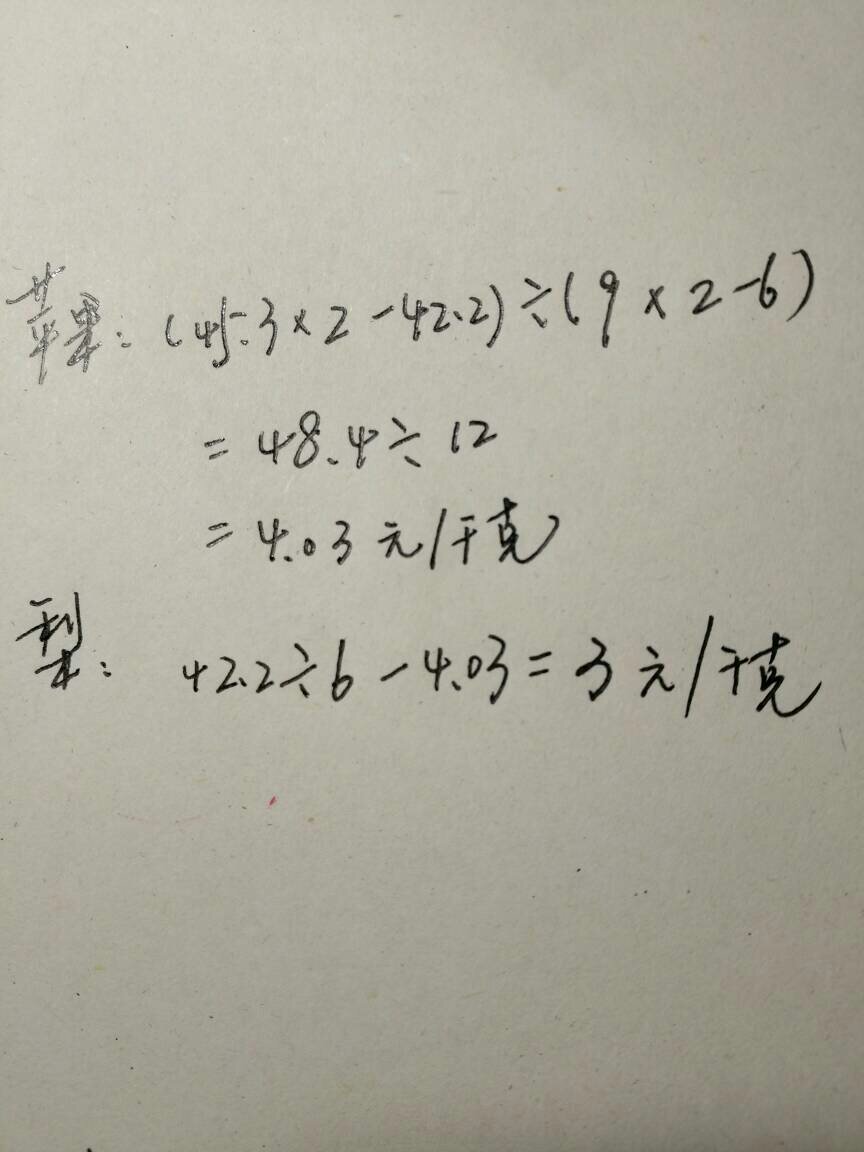 苹果：(45.3×2-42.2)÷(9×2-6)
=48.4÷12
=4.03元/千克
梨：42.2÷6-4.03=3元/千克